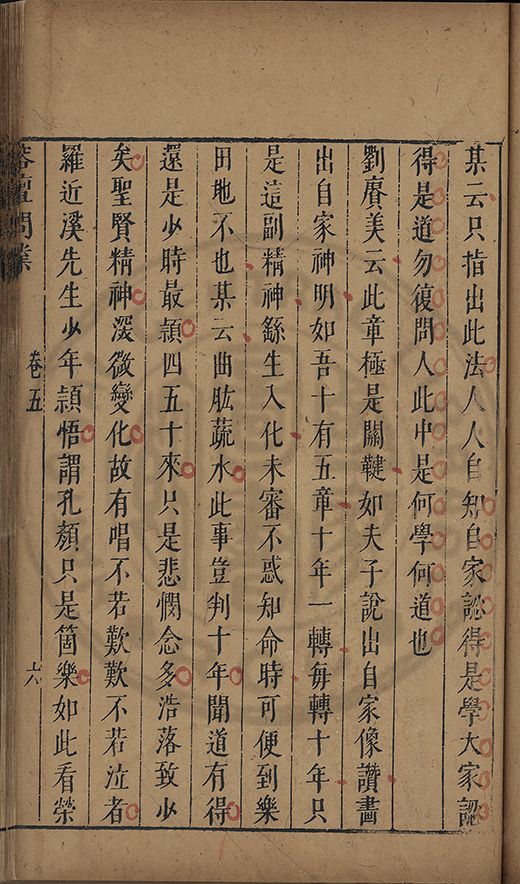 某云只指出此法人人自知自家認得是學大家認
得是道勿復問人此中是何學何道也
劉麐美云此章極是關鍵如夫子說出自家像讚畵
出自家神明如吾十有五章十年一轉每轉十年只
是這副精神繇生入化未審不惑知命時可便到樂
田地不也某云曲肱蔬水此事豈判十年聞道有得
還是少時最頴四五十來只是悲憫念多浩落致少
矣聖賢精神漸微變化故有唱不若歎歎不若泣者
羅近溪先生少年頴悟謂孔顏只是箇樂如此看榮
榕壇問業
卷五
六